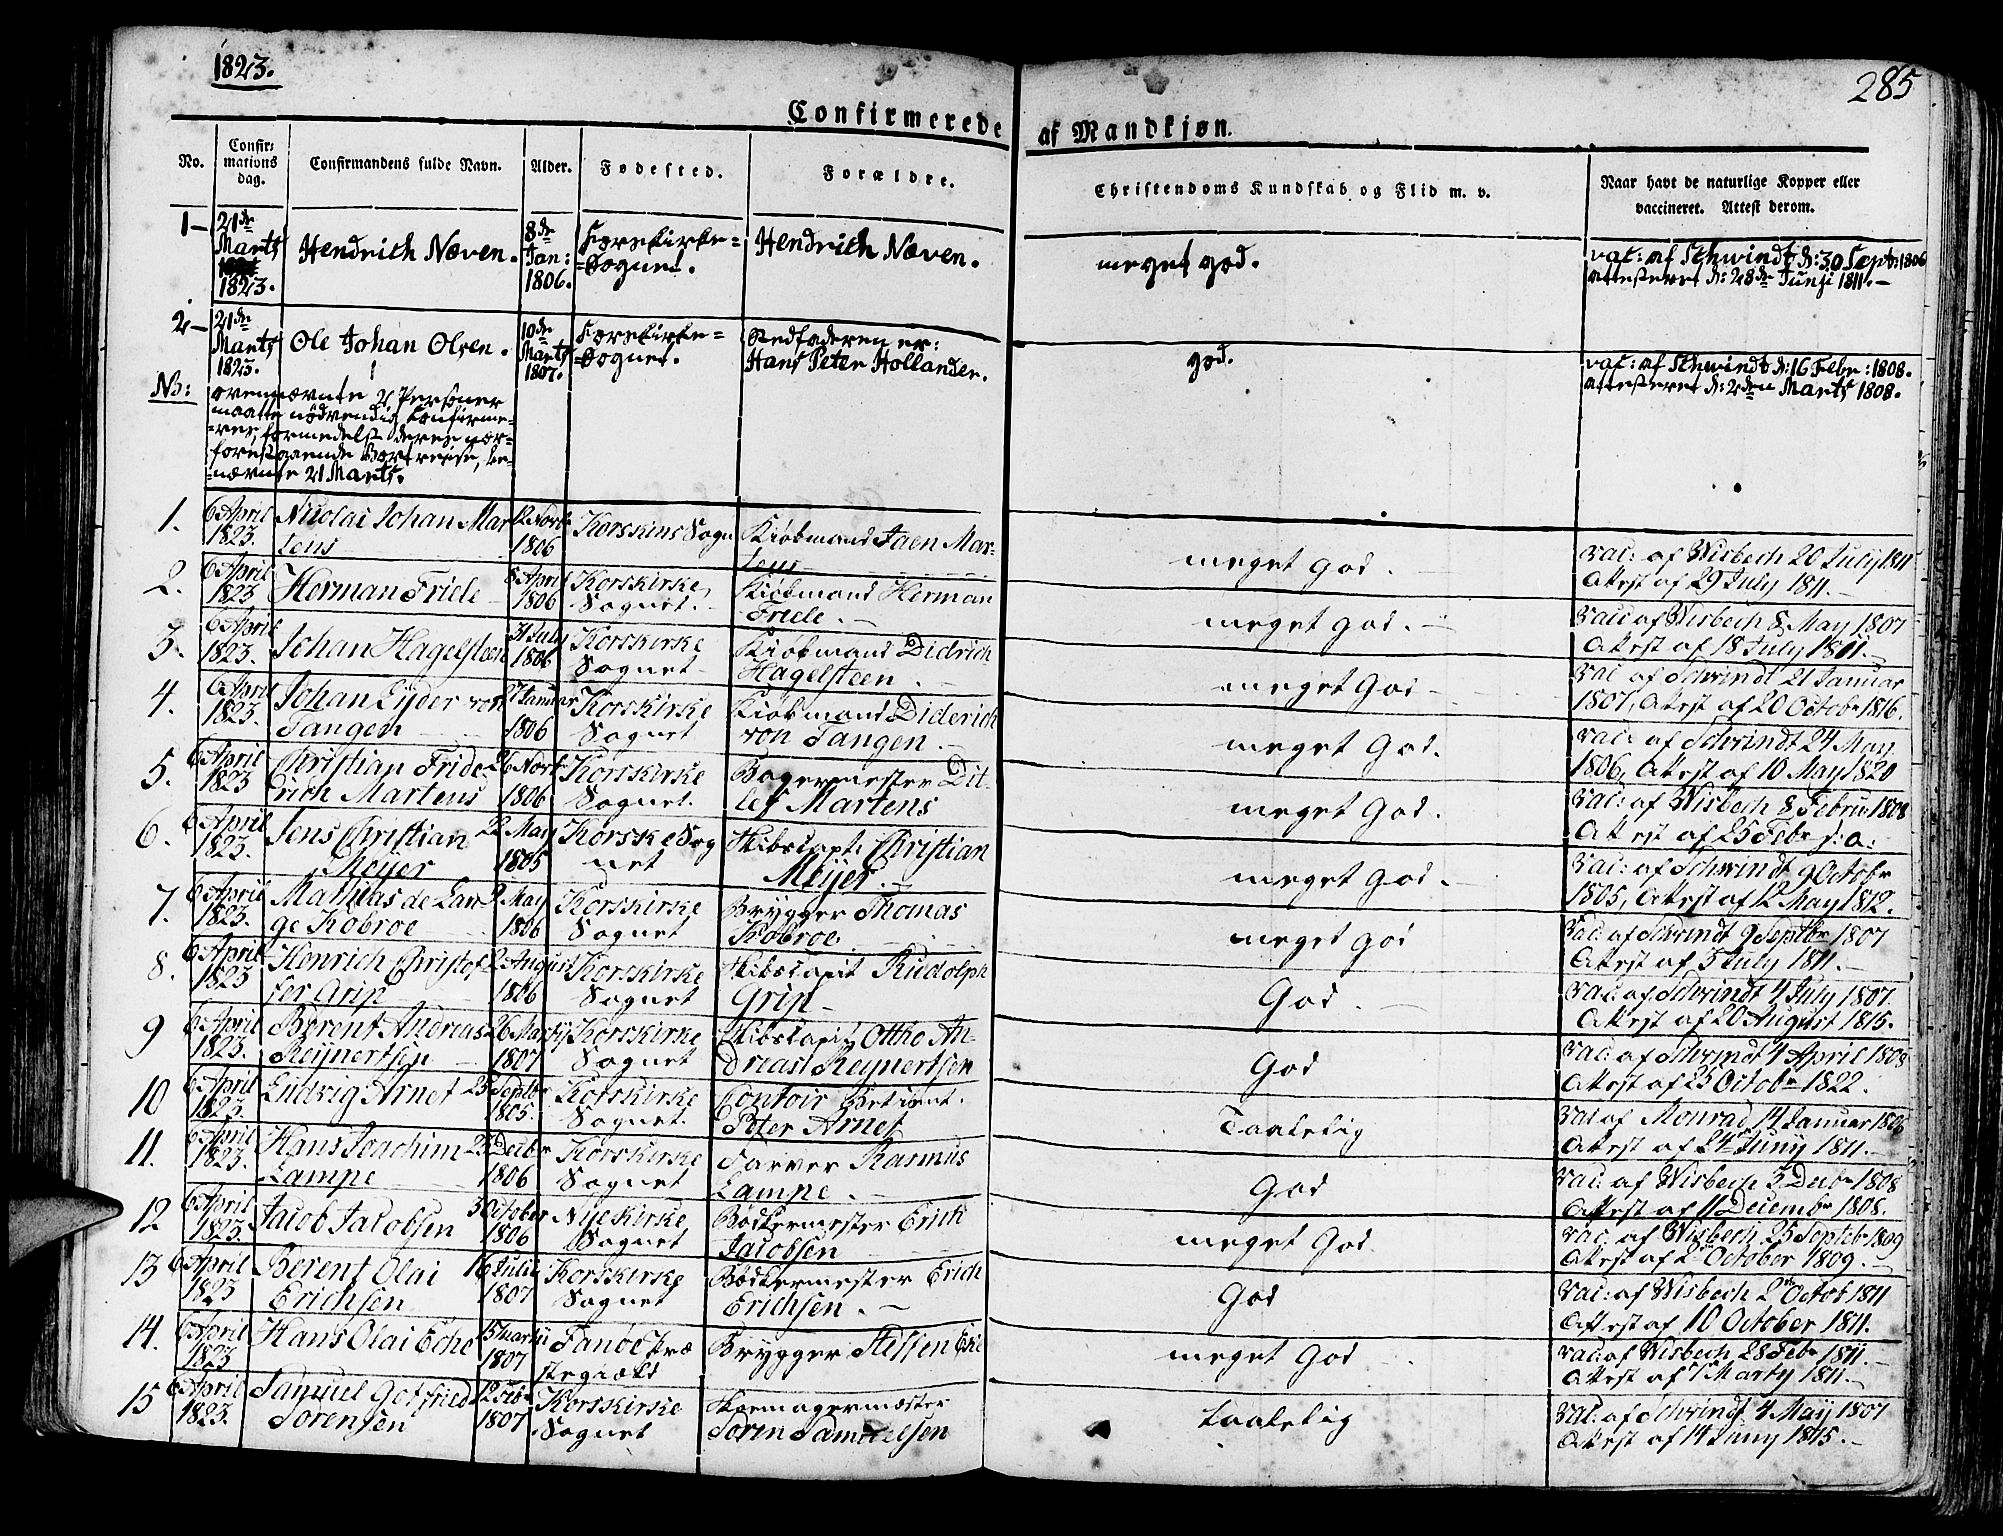 1823.
285
Confirmerede af Mandkjøn.
No.
Confir:
mations
dag.
Confirmandens fulde Navn.
Alder.
Fødested.
Forældre.
Christendoms Kundskab og Flid m. v.
Naar havt de naturlige Kopper eller
vaccineret. Attest derom.
1- 21de Marts 1823. Hendrich Næven. 8de Jan: 1806. Korskirke= =Sognet. Hendrich Næven. meget god. vac: af Schwindt d: 30 Septr: 1806 attesteret d: 28de Junji 1811.-
2- 21de Marts 1823. Ole Johan Olsen. 10de Marts 1807. Korskirke= =Sognet. Stedfaderen er: Hans Peter Hollander. god. vac: af Schwindt d: 16 Febr: 1808. attesteret d: 2den Marts 1808.
NB:
ovennævnte 2 Personer
maatte nödvendig Confirme=
=res, formedelst deres
forestaaende Bortreise, be=
=nævnte 21 Marts.
1. 6 April 1823. Nicolai Johan Martens 12 Novb 1806 Korskirke Sogn Kiøbmand Jaen Martens meget God. vac: af Wisbech 20 July 1811 Attest af 29 July 1811.
2. 6 April 1823 Herman Friele 8 April 1806 Korskirke Sognet. Kiøbmand Herman Friele. meget god. Vac: af Wisbech 8 May 1807 Attest af 18 July 1811.
3. 6 April 1823. Johan Hagelsteen 31 July 1806 Korskirke Sognet Kiøbmand Didrich Hagelsteen. meget God Vac af Schvindt 21 Januar 1807, Attest af 20 Octobr 1816.
4. 6 April 1823. Johan Lyder von Tangen 27 Januar 1806 Korskirke Sognet Kiøbmand Diderich von Tangen. meget God. Vac: af Schvindt 24 May 1806, Attest af 10 May 1820
5. 6 April 1823 Christian Friderich Martens 26 Novb 1806 Korskirke Sognet. Bagermester Ditlef Martens meget God. Vac: af Wisbech 8 Febru 1808 Attest af 25 Febr s: a:
6. 6 April 1823. Jens Christian Meyer 22 May 1805 Korskirke Sognet Skibscapt: Christian Meyer. meget God. Vac: af Schvindt 9 Octobr 1805, Attest af 12 May 1812.
7. 6 April 1823. Mathias de Lange Kobroe 2 May 1806 Korskirke Sognet Brygger Thomas Kobroe. meget God Vac: af Schvindt 9 Septbr 1807 Attest af 5 July 1811.
8. 6 April 1823 Henrich Christoffer Grip 2 August 1806 Korskirke Sognet Skibscapit Rudolph Grip God. Vac: af Schvindt 4 July 1807. Attest af 20 August 1815.
9 6 April 1823. Berent Andreas Reijnertsen 26 Martij 1807 Korskirke Sognet Skibscapit: Ottho Andreas Reijnertsen God Vac: af Schvindt 4 April 1808 Attest af 25 Octobr 1822.
10 6 April 1823. Ludvig Arnet 25 Septbr 1805. Korskirke Sognet. Contoir Betient. Peter Arnet Taalelig Vac af Monrad 14 Januar Attest af 24 Juny 1811.
11. 6 April 1823. Hans Joachim Lampe 23 Decbr 1806 Korskirke Sognet Farver Rasmus Lampe. God Vac: af Wisbech 3 Decbr 1808 Attest af 11 Decembr 1808.
12 6 April 1823. Jacob Jacobsen 5 October 1806 Nye Kirke Sognet Bødkermester Erich Jacobsen meget God. Vac. af Wisbech 25 Septebr 1809 Attest af 2 October 1809.
13 6 April 1823 Berent Olai Erichsen 16 Julii 1807 Korskirke Sognet Bødkermester Erich Erichsen. God Vac: af Wisbech 2 Octob 1811 Attest af 10 October 1811.
14. 6 April 1823 Hans Olai Eche 15 Martij 1807 Fanøe Præstegiæld Brygger Steffen Eche meget God Vac: af Wisbech 28 Febr 1811. Attest af 7 Marty 1811.
15 6 April 1823. Samuel Gotfried Sorensen 12 Febr 1807 Korskirke Sognet Skomagermester Soren Samuelsen taalelig Vac: af Schvindt 4 Maij 1807 Attest af 14 Juny 1815.